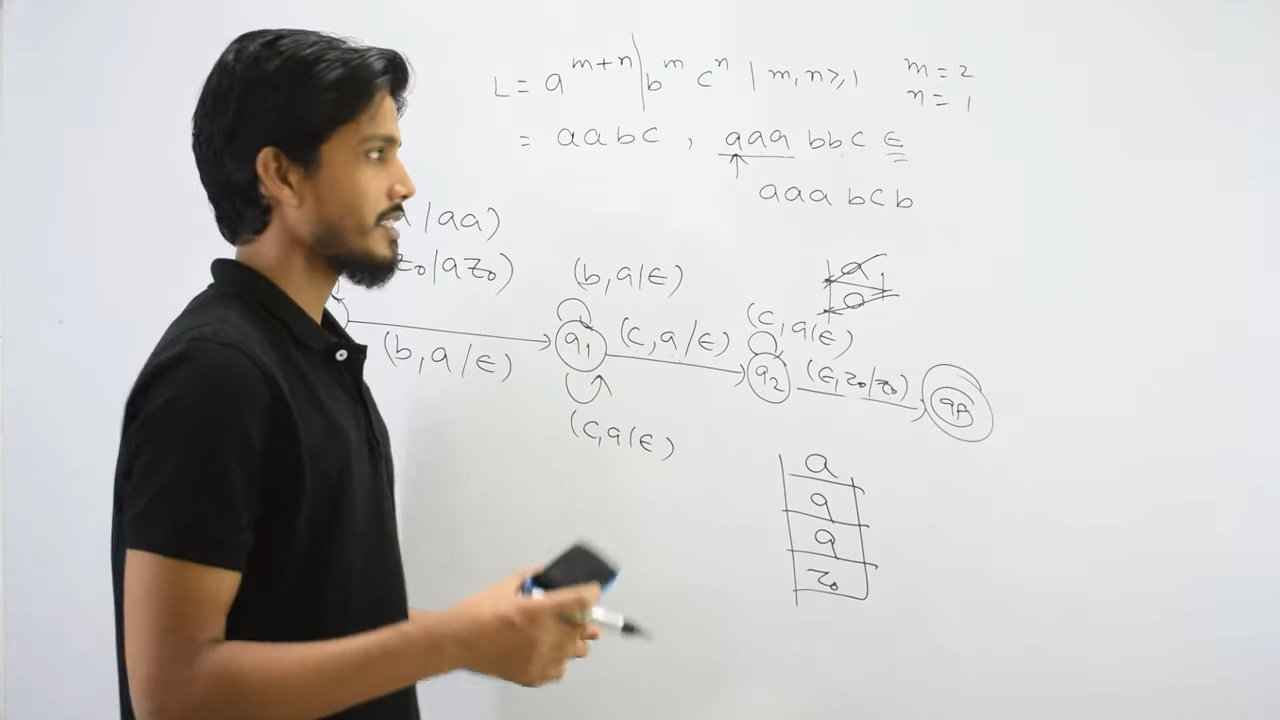 L = a^{m+n} | b^m c^n | m, n ≥ 1 m = 2
n = 1
= aabc , aaa bbc ε
aaa bcb
a
a
/aa)
z₀/az₀)
(b, a/ε)
(b, a/ε)
q₁
(c, a/ε)
(c, a/ε)
(c, a/ε)
q₂
(ε, z₀/z₀)
a
a
a
z₀